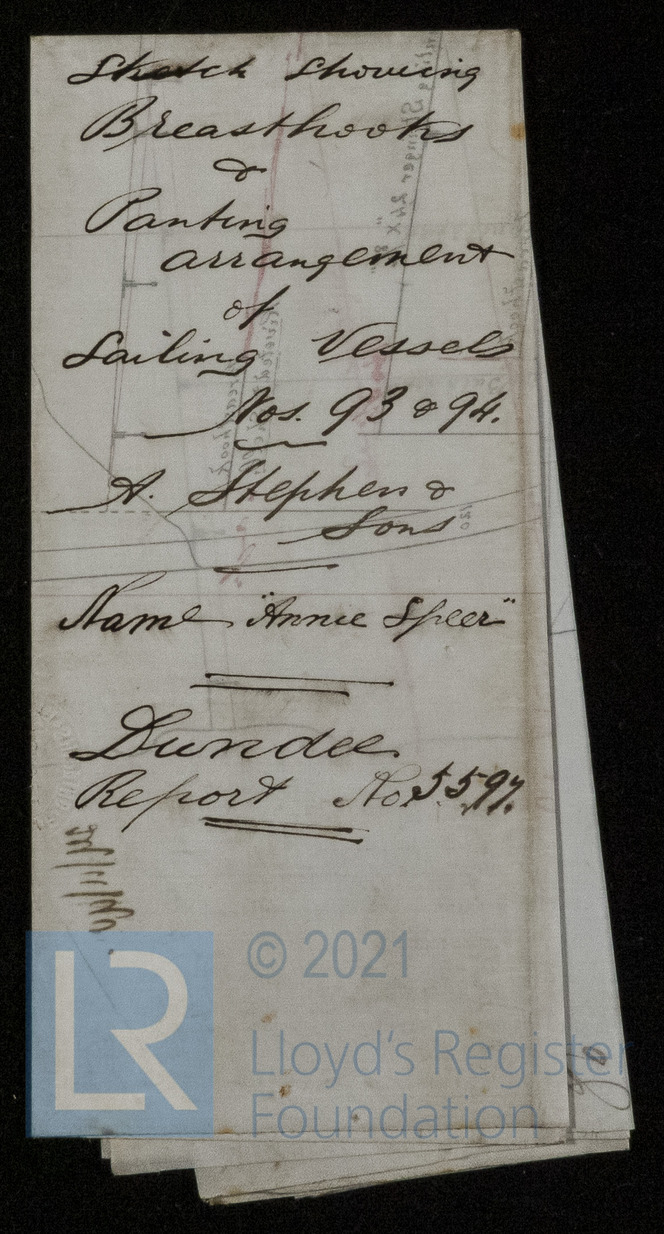 Sketch Showing
Breasthooks
&
Panting
arrangement
of
Sailing Vessels
Nos. 93 & 94.
A. Stephen &
Sons
Name "Annie Speer"
Dundee
Report No. 5597.
LR
© 2021
Lloyd's Register
Foundation